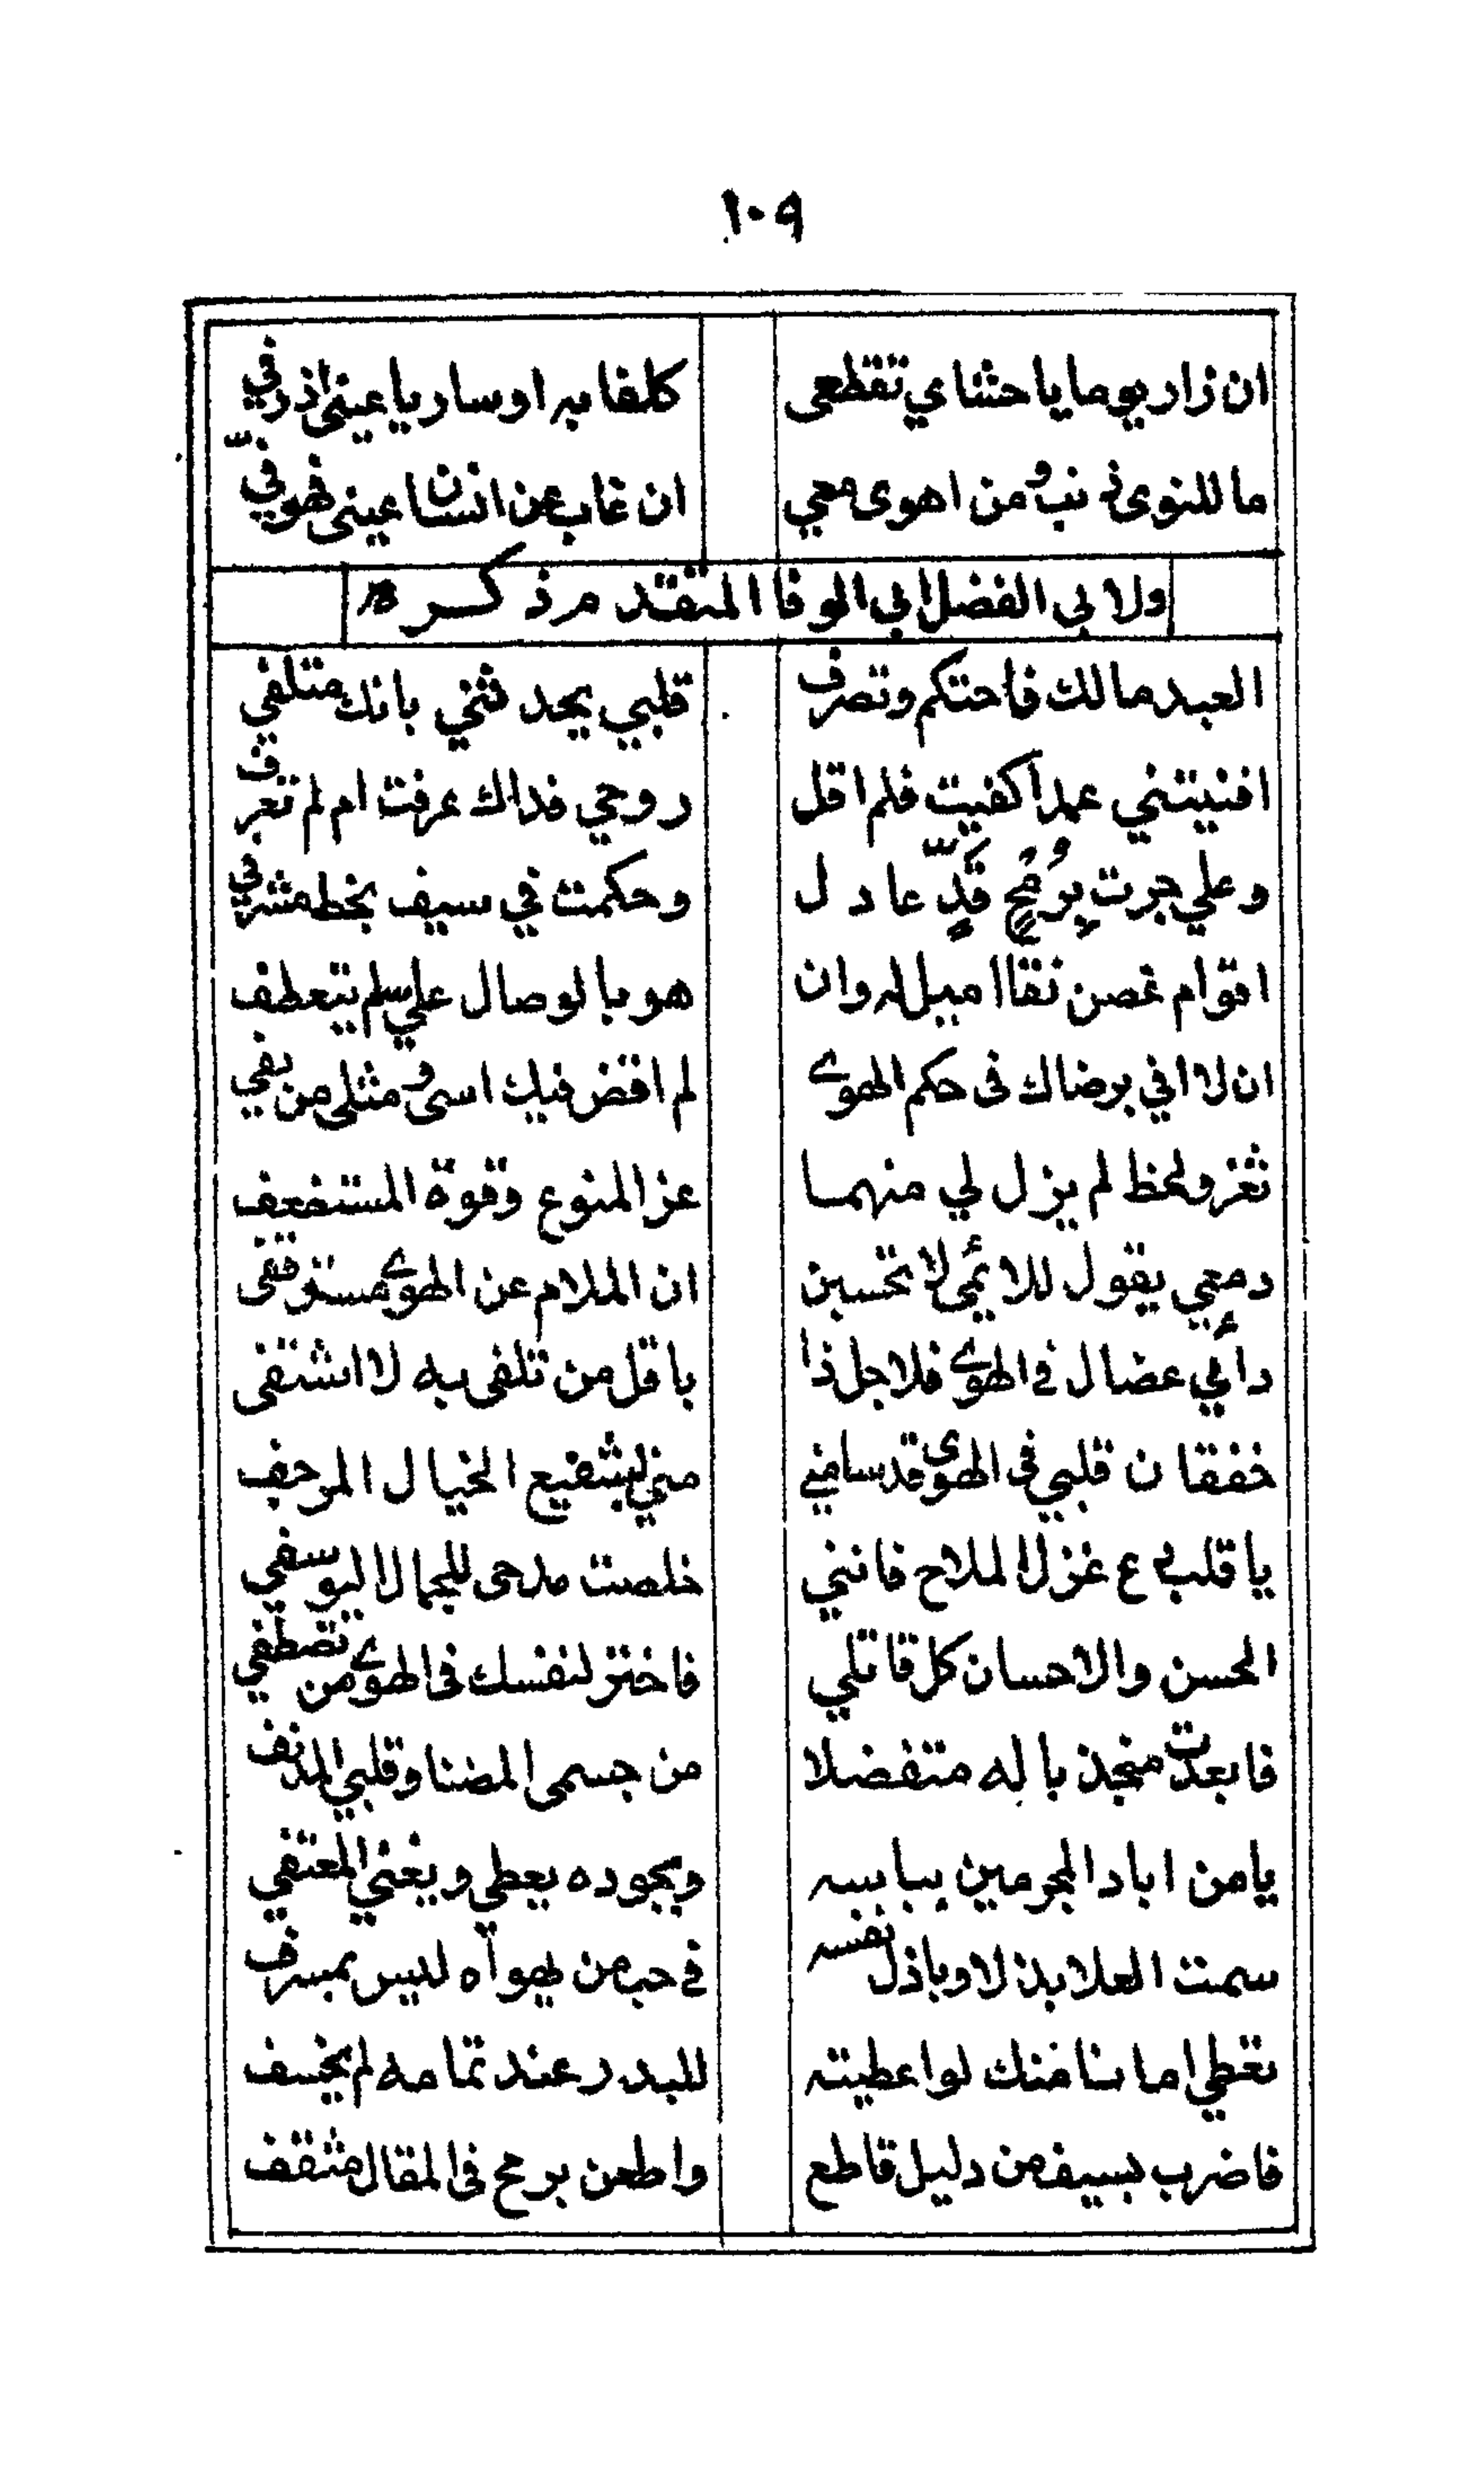 ١٠٩
ان زار يوما يا حشاي تقطعى كلفا به او سار يا عينى اذرفي
ما للنوى ذنب ومن اهوى معي ان غاب عن انسان عينى فهو فيّ
ولابي الفضل ابي الوفا المتقدم ذكره
العبد مالك فاحتكم وتصرف قلبي يحدثني بانك متلفي
افنيتني عمدا كفيت فلم اقل روحي فداك عرفت ام لم تعرف
وعلي جرت بِرُمْحٍ قَدٍّ عادل وحكمت في سيف بخط مشرفي
اقوام غصن نقا اميل له وان هو بالوصال علي لم يتعطف
ان لا افي برضاك فى حكم الهوى لم اقض فيك اسى ومثلى من يفي
ثغر ولحظ لم يزل لي منهما عز المنوع وقوة المستضعف
دمعي يقول للائمى لا تحسبن ان الملام عن الهوى مستوقفى
دائي عضال في الهوى فلاجل ذا باقل من تلفى به لا اشتفى
خفقان قلبي فى الهوى قد سامني منى لشفيع الخيال المرجف
يا قلب دع غزل الملاح فانني خلصت مدحى للجمال اليوسفي
الحسن والاحسان كل قاتلي فاختر لنفسك فى الهوى من تصطفي
فابعدت منجذ باله متفضلا من جسمى المضنا وقلبي المدنف
يا من اباد المجرمين ببابه وبجوده يعطي ويغني المعتفي
سمت العلا بذلا وباذل نفسه في حب من يهواه ليس بمسرف
تعطي امانا منك لو اعطيته للبدر عند تمامه لم يخسف
فاضرب بسيف من دليل قاطع واطعن برمح فى المقال مثقف